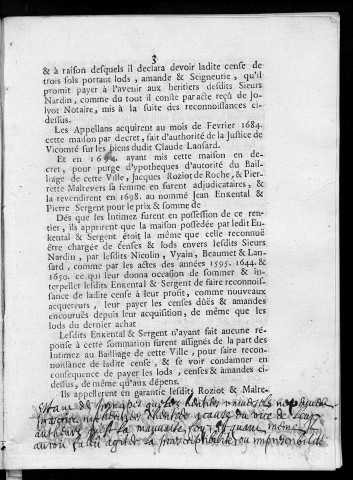 3
& à raison desquels il declara devoir ladite cense de
trois sols portant lods, amande & Seigneurie, qu'il
promit payer à l'avenir aux heritiers desdits Sieurs
Nardin, comme du tout il conste par acte reçû de Jo-
lyot Notaire, mis à la suite des reconnoissances ci-
dessus.
Les Appellans acquirent au mois de Fevrier 1684.
cette maison par decret, fait d'authorité de la Justice de
Vicomté sur les biens dudit Claude Lansard.
Et en 1694. ayant mis cette maison en de-
cret, pour purge d'ypotheques d'autorité du Bail-
liage de cette Ville, Jacques Roziot de Roche, & Pier-
rette Malrevers sa femme en furent adjudicataires, &
la revendirent en 1698. au nommé Jean Enxental &
Pierre Sergent pour le prix & somme de
Dés que les Intimez furent en possession de ce ren-
tier, ils apprirent que la maison possedée par ledit Eu-
kental & Sergent étoit la même que celle reconnuë
être chargée de censes & lods envers lesdits Sieurs
Nardin, par lesdits Nicolin, Vyain, Beaumet & Lan-
sard, comme par les actes des années 1595. 1644. &
1650. ce qui leur donna occasion de sommer & in-
terpeller lesdits Enxental & Sergent de faire reconnois-
sance de ladite cense à leur profit, comme nouveaux
acquereurs, leur payer les censes dûës & amandes
encouruës depuis leur acquisition, de même que les
lods du dernier achat
Lesdits Enxental & Sergent n'ayant fait aucune ré-
ponse à cette sommation furent assignés de la part des
Intimez au Bailliage de cette Ville, pour faire recon-
noissance de ladite cense, & se voir condamner en
consequence de payer les lods, censes & amandes ci-
dessus, de même qu'aux dépens.
Ils appellerent en garantie lesdits Roziot & Malre-
estant de principes que les heritiers
autheurs la mauvaise foy, et quand même il